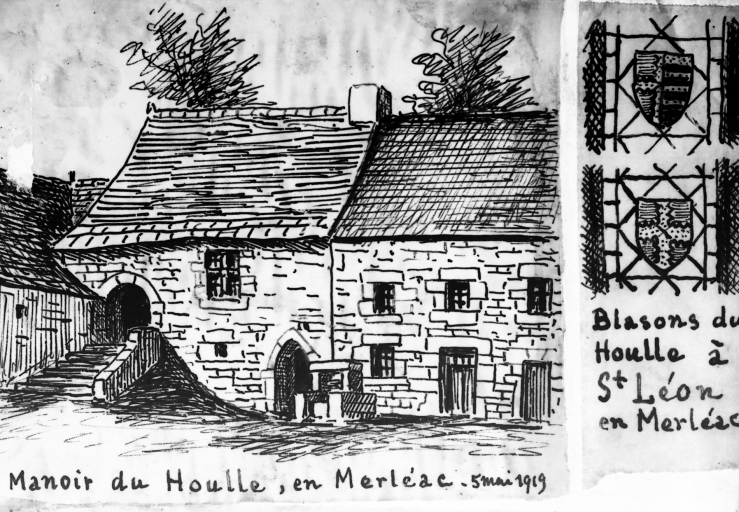 Manoir du Houlle, en Merléac. 5 mai 1919
Blasons du
Houlle à
St Léon
en Merléac